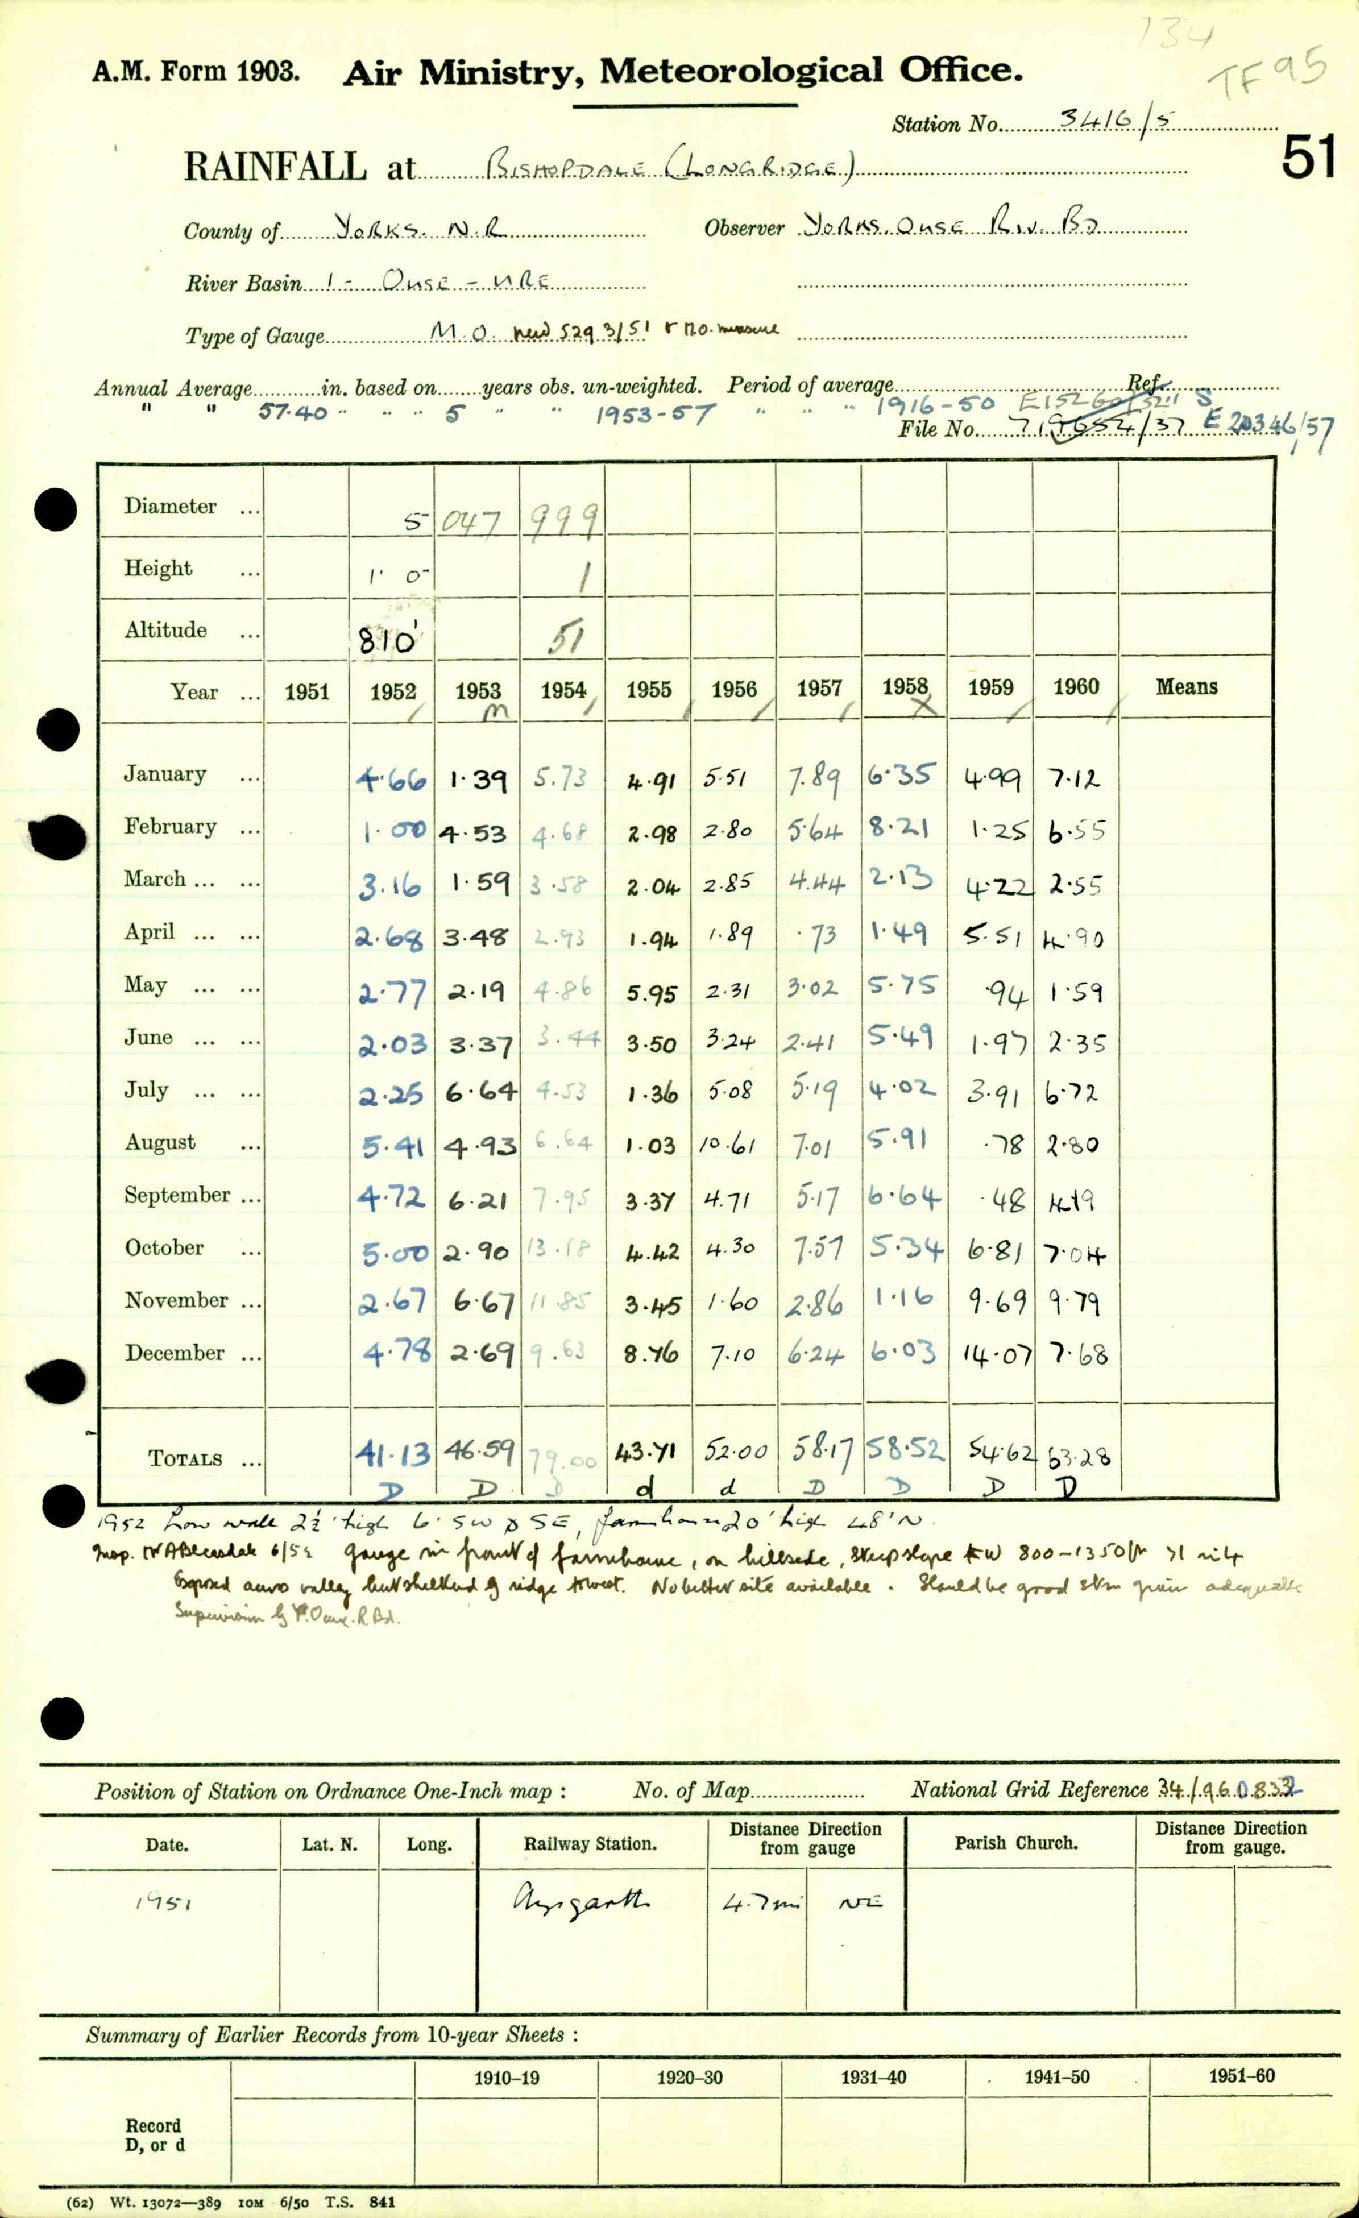 134
TF 95
A.M. Form 1903. Air Ministry, Meteorological Office.
Station No. 3416/5
51
RAINFALL at BISHOPDALE (LONGRIDGE)
County of YORKS. N.R Observer YORKS. OUSE RIV. BD
River Basin 1 - OUSE - URE
Type of Gauge M.O. new 529 3/51 & M.O. measure
Annual Average in. based on years obs. un-weighted. Period of average Ref.
" " 57.40 " " " 5 " " 1953-57 " " " 1916-50
File No. E 20346/57
Diameter ... 5 047 999
Height ... 1' 0" 1
Altitude ... 810' 51
Year ... 1951 1952 1953 1954 1955 1956 1957 1958 1959 1960 Means
/ m / / / / X / /
January ... 4.66 1.39 5.73 4.91 5.51 7.89 6.35 4.99 7.12
February ... 1.00 4.53 4.68 2.98 2.80 5.64 8.21 1.25 6.55
March ... ... 3.16 1.59 3.58 2.04 2.85 4.44 2.13 4.22 2.55
April ... ... 2.68 3.48 2.93 1.94 1.89 .73 1.49 5.51 4.90
May ... ... 2.77 2.19 4.86 5.95 2.31 3.02 5.75 .94 1.59
June ... ... 2.03 3.37 3.44 3.50 3.24 2.41 5.49 1.97 2.35
July ... ... 2.25 6.64 4.53 1.36 5.08 5.19 4.02 3.91 6.72
August ... 5.41 4.93 6.64 1.03 10.61 7.01 5.91 .78 2.80
September ... 4.72 6.21 7.95 3.37 4.71 5.17 6.64 .48 4.19
October ... 5.00 2.90 13.18 4.42 4.30 7.57 5.34 6.81 7.04
November ... 2.67 6.67 11.85 3.45 1.60 2.86 1.16 9.69 9.79
December ... 4.78 2.69 9.63 8.76 7.10 6.24 6.03 14.07 7.68
TOTALS ... 41.13 46.59 79.00 43.71 52.00 58.17 58.52 54.62 63.28
D D D d d D D D D
1952 Low wall 2½' high 6' SW & SE, farmhouse 20' high 48' N.
Insp. 6/52 Gauge in front of farmhouse, on hillside, steep slope to W 800-1350ft
Exposed across valley but sheltered by ridge to west. No better site available. Should be good stn given adequate
supervision by Y. Ouse. R Bd.
Position of Station on Ordnance One-Inch map : No. of Map National Grid Reference 34/960832
Date. Lat. N. Long. Railway Station. Distance from gauge Direction Parish Church. Distance from gauge. Direction
1951 Aysgarth 4.7 mi NE
Summary of Earlier Records from 10-year Sheets :
1910–19 1920–30 1931–40 1941–50 1951–60
Record
D, or d
(62) Wt. 13072—389 10M 6/50 T.S. 841